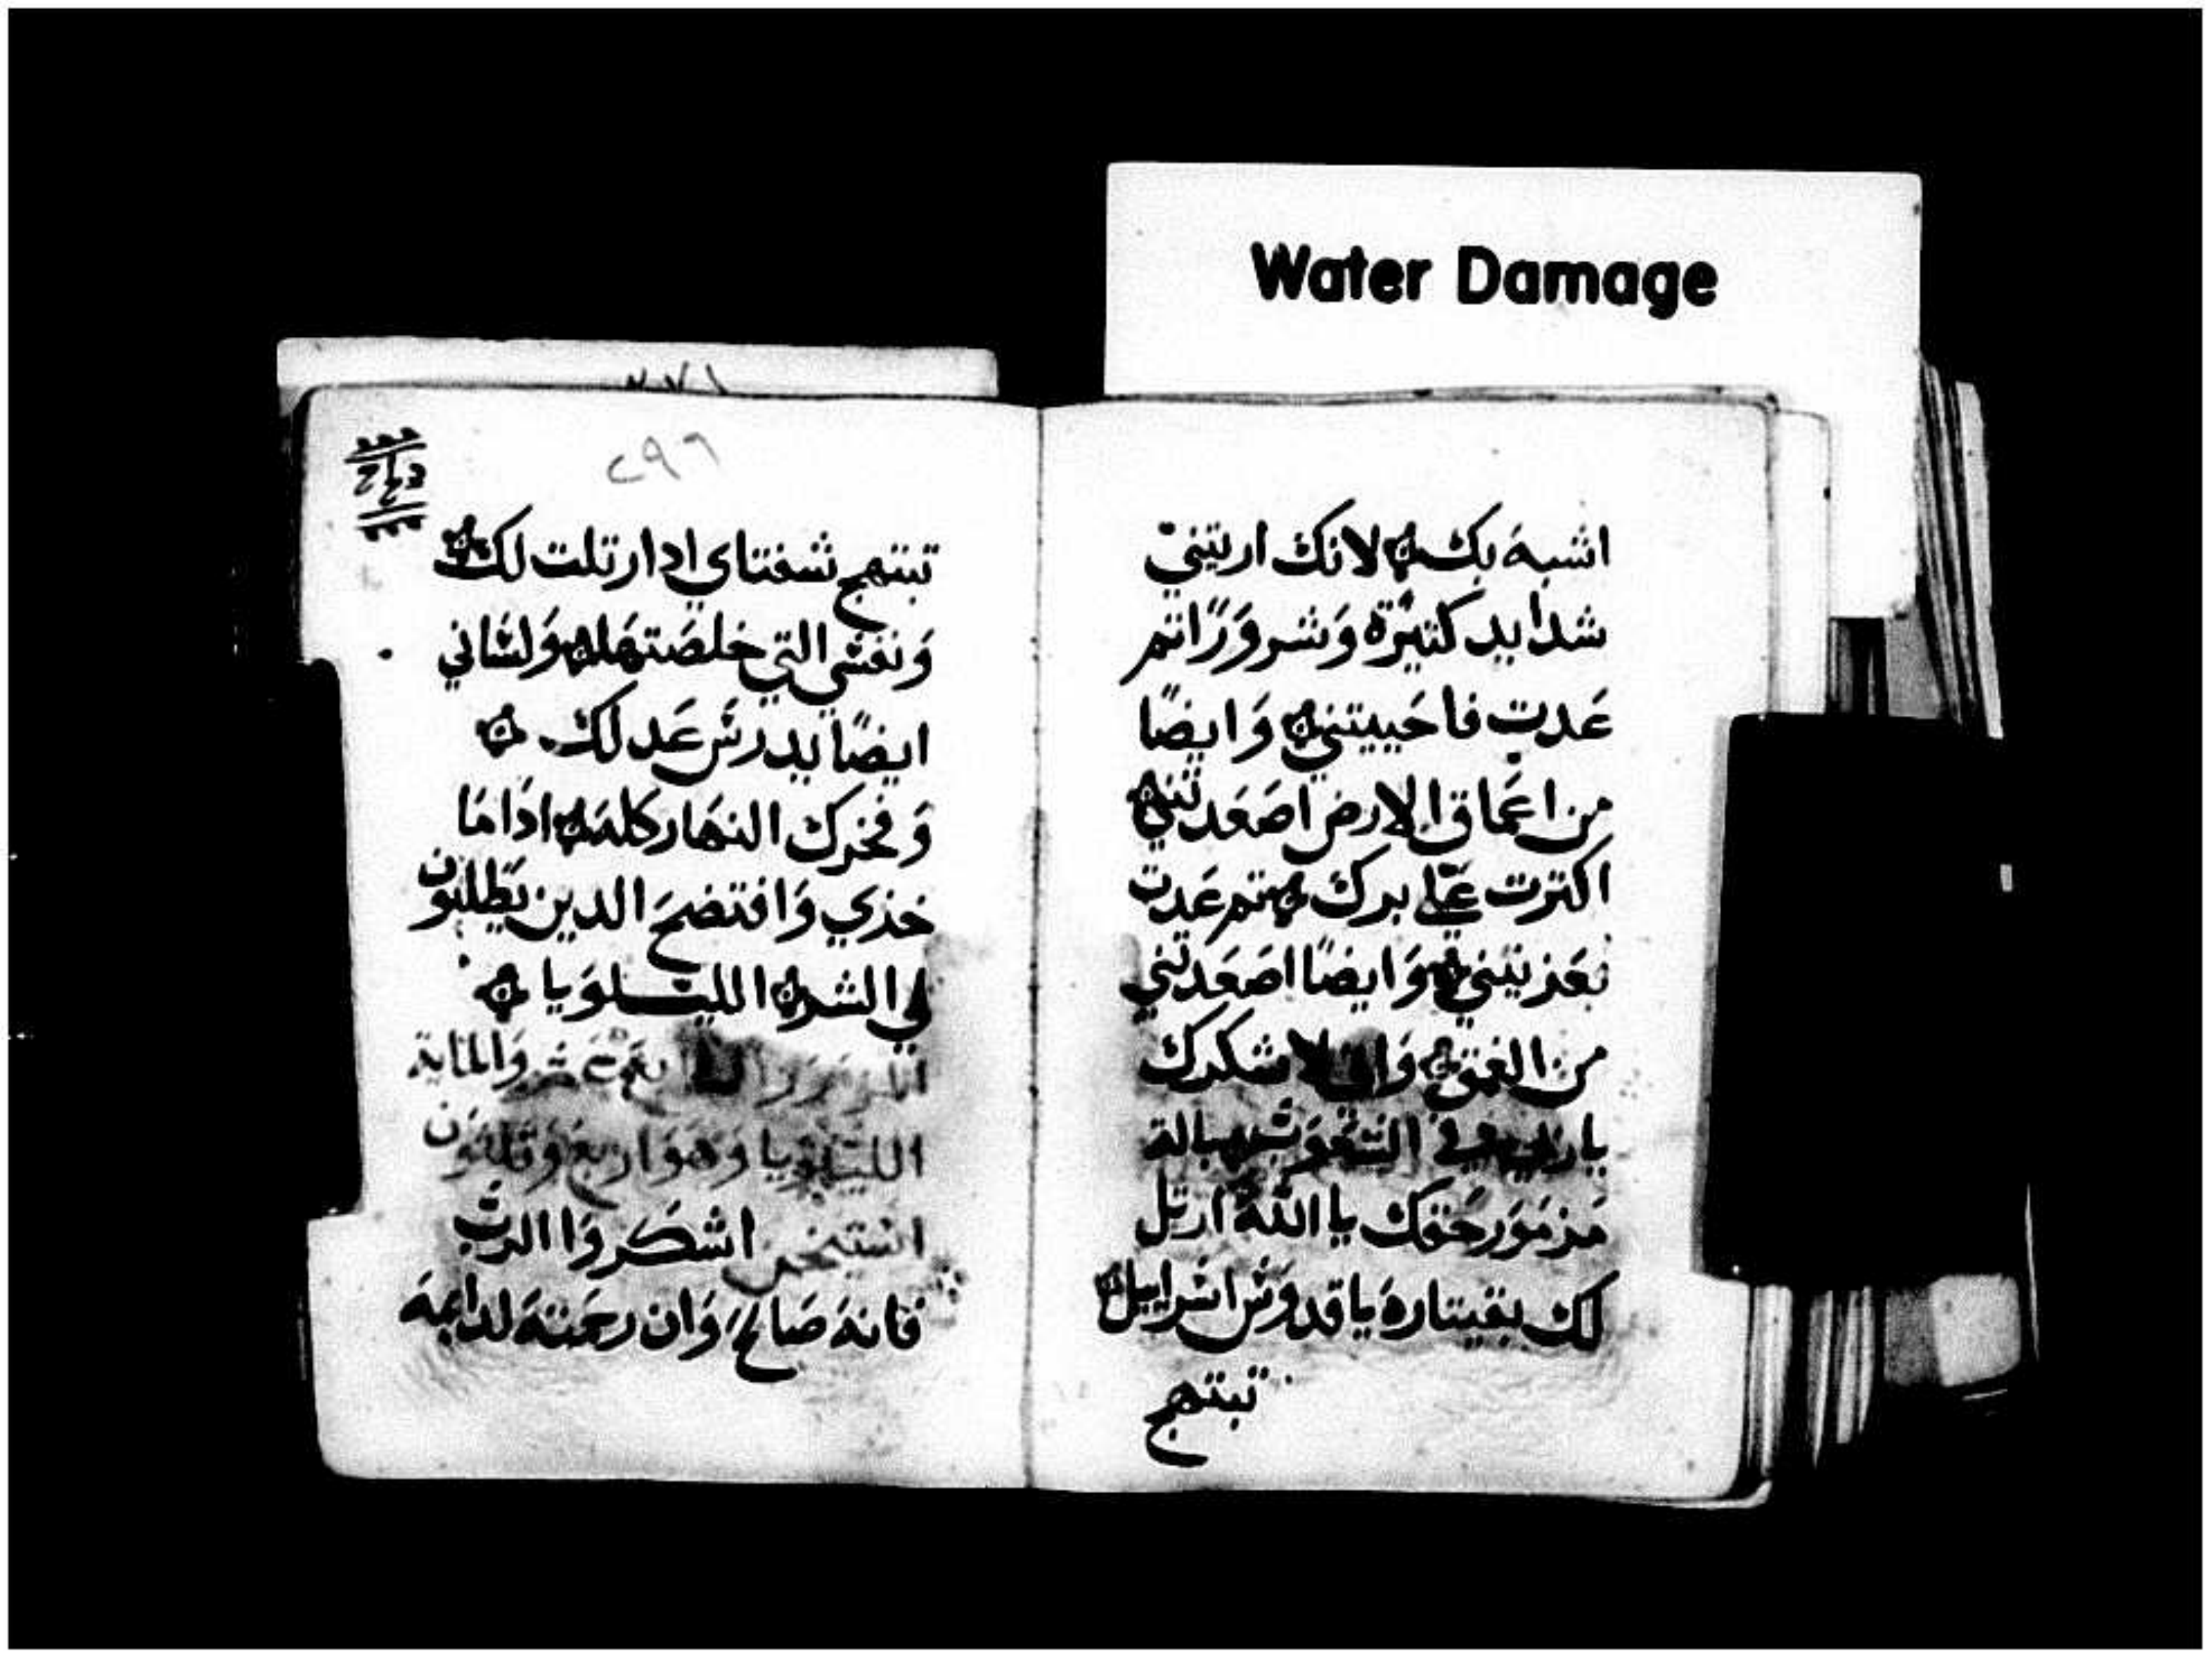 Water Damage
اشبهَ بكَ لانكَ اريتنيَ
شدايد كتيرَة وَشرورًا تم
عَدت فاحَييتني وَايضًا
من اعَماق الارض اصَعَدتني
اكترت عَلي برك تم عَدت
فعَزيتني وَايضًا اصَعَدتني
من الغمق وَانا لاشكرك
يارب في الشعوَب بالة
مَزموَر حَقك يا اللّهَ ارتل
لك بقيتارهَ يا قدوَسَ اسَراييل
تبتهج
٢٩٦
تبتهج شفتاي ادا رتلت لك
وَنفسَي التي خلصَتهَا وَلسَاني
ايضًا يدرسَ عَدلك
وَفخرك النهَار كلهَ ادَامَا
خذي وَافتضحَ الدين يَطلبوَن
لي الشر الليـلوَيا
وَالماية
الليلوَيا وَهوَ اربعَ وَتلتوَن
استيخن اشكَروَا الربَ
فانهَ صَالحَ وَان رحَمتهَ لدايمَهَ